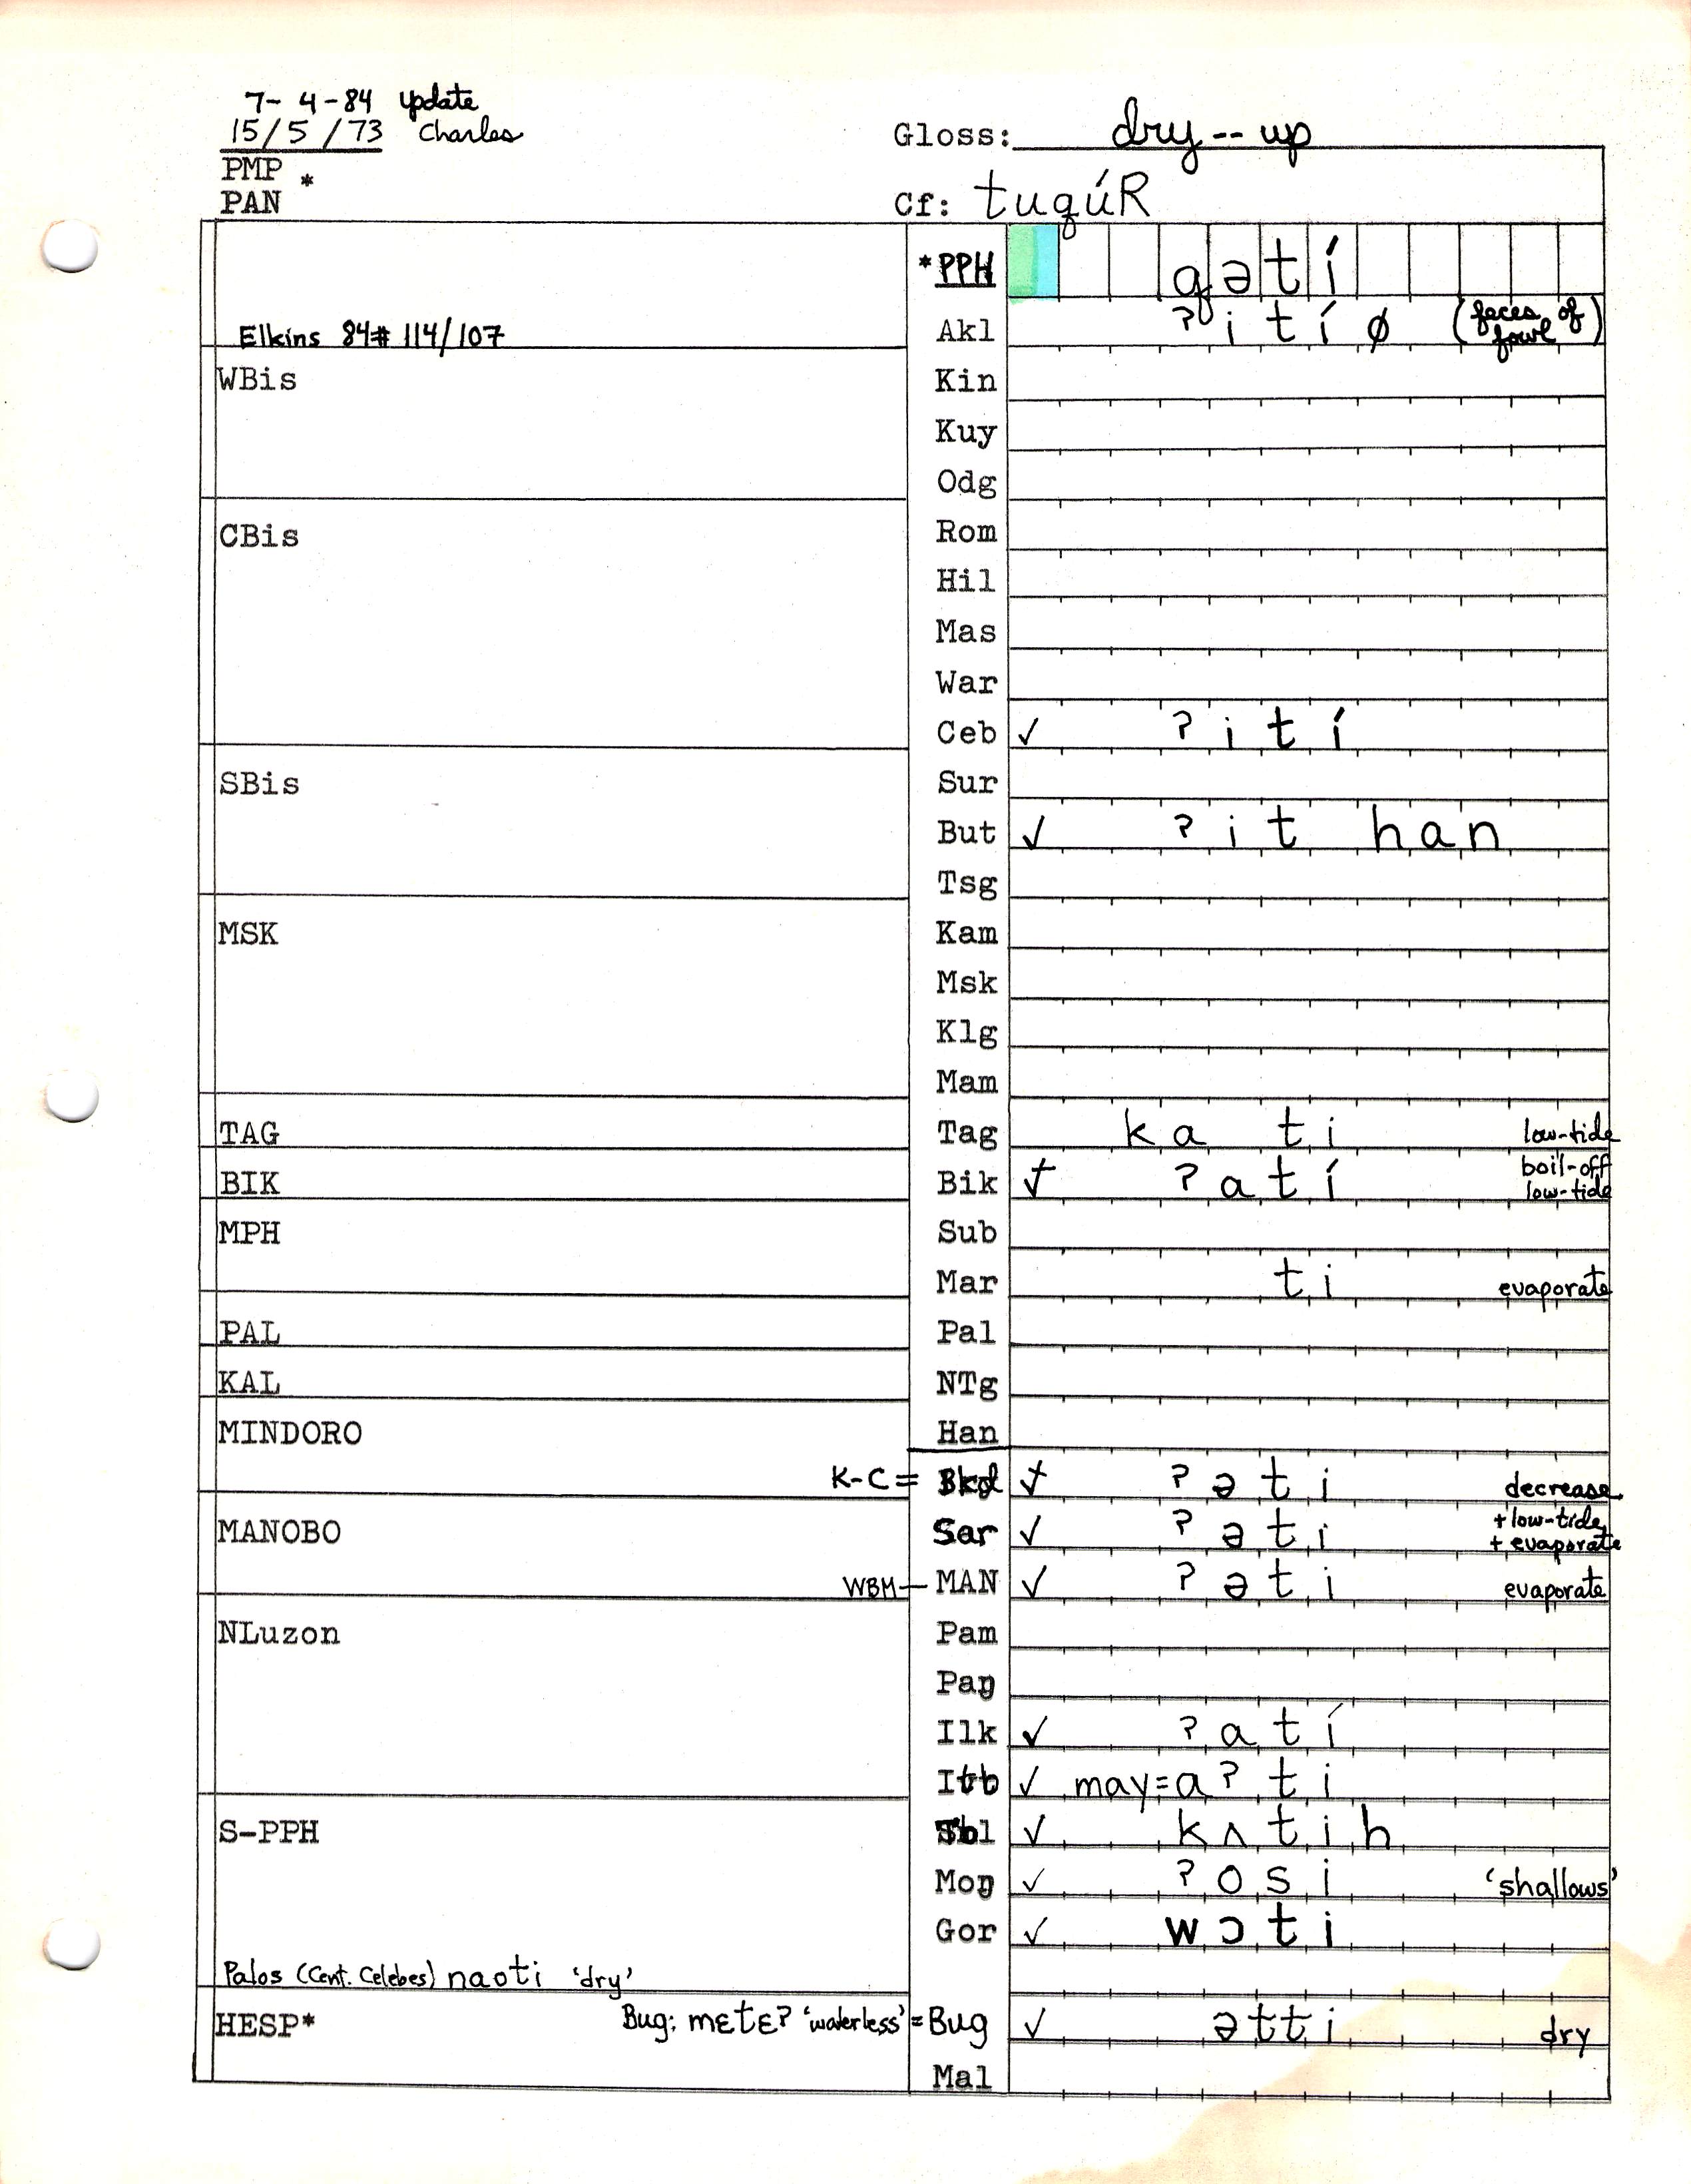 7-4-84 update
15/5/73 Charles
Gloss: dry -- up
PMP *
PAN
Cf: tuqúR
*PPH qətí
Elkins 84# 114/107
Akl ʔitíø (feces of fowl)
WBis
Kin
Kuy
Odg
CBis
Rom
Hil
Mas
War
Ceb ✓ ʔití
SBis
Sur
But ✓ ʔit han
Tsg
MSK
Kam
Msk
Klg
Mam
TAG
Tag ka ti low-tide
BIK
Bik ✓ ʔatí boil-off low-tide
MPH
Sub
Mar ti evaporate
PAL
Pal
KAL
NTg
MINDORO
Han
K-C = Bkd ✓ ʔəti decrease
MANOBO
Sar ✓ ʔəti +low-tide + evaporate
WBM — MAN ✓ ʔəti evaporate
NLuzon
Pam
Paŋ
Ilk ✓ ʔatí
Itb ✓ may=aʔti
S-PPH
Tbl ✓ kʌtih
Moŋ ✓ ʔosi 'shallows'
Gor ✓ wɔti
Palos (Cent. Celebes) naoti 'dry'
HESP*
Bug: mɛtɛʔ 'waterless' = Bug ✓ ətti dry
Mal